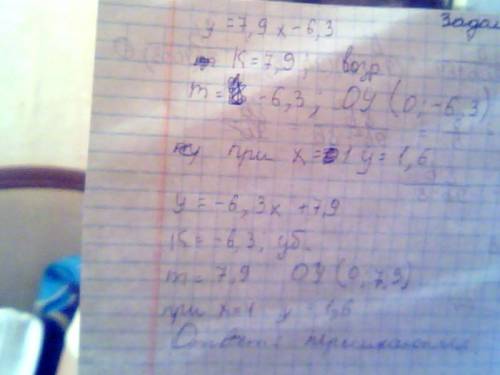 Задал
у = 7,9 х - 6,3
К = 7,9 ; возр
m = - 6,3 ; ОУ (0; -6,3)
при х = 1 у = 1,6
у = -6,3х + 7,9
К = -6,3, уб.
m = 7,9 ОУ (0, 7,9)
при х=1 у = 1,6
Ответ: